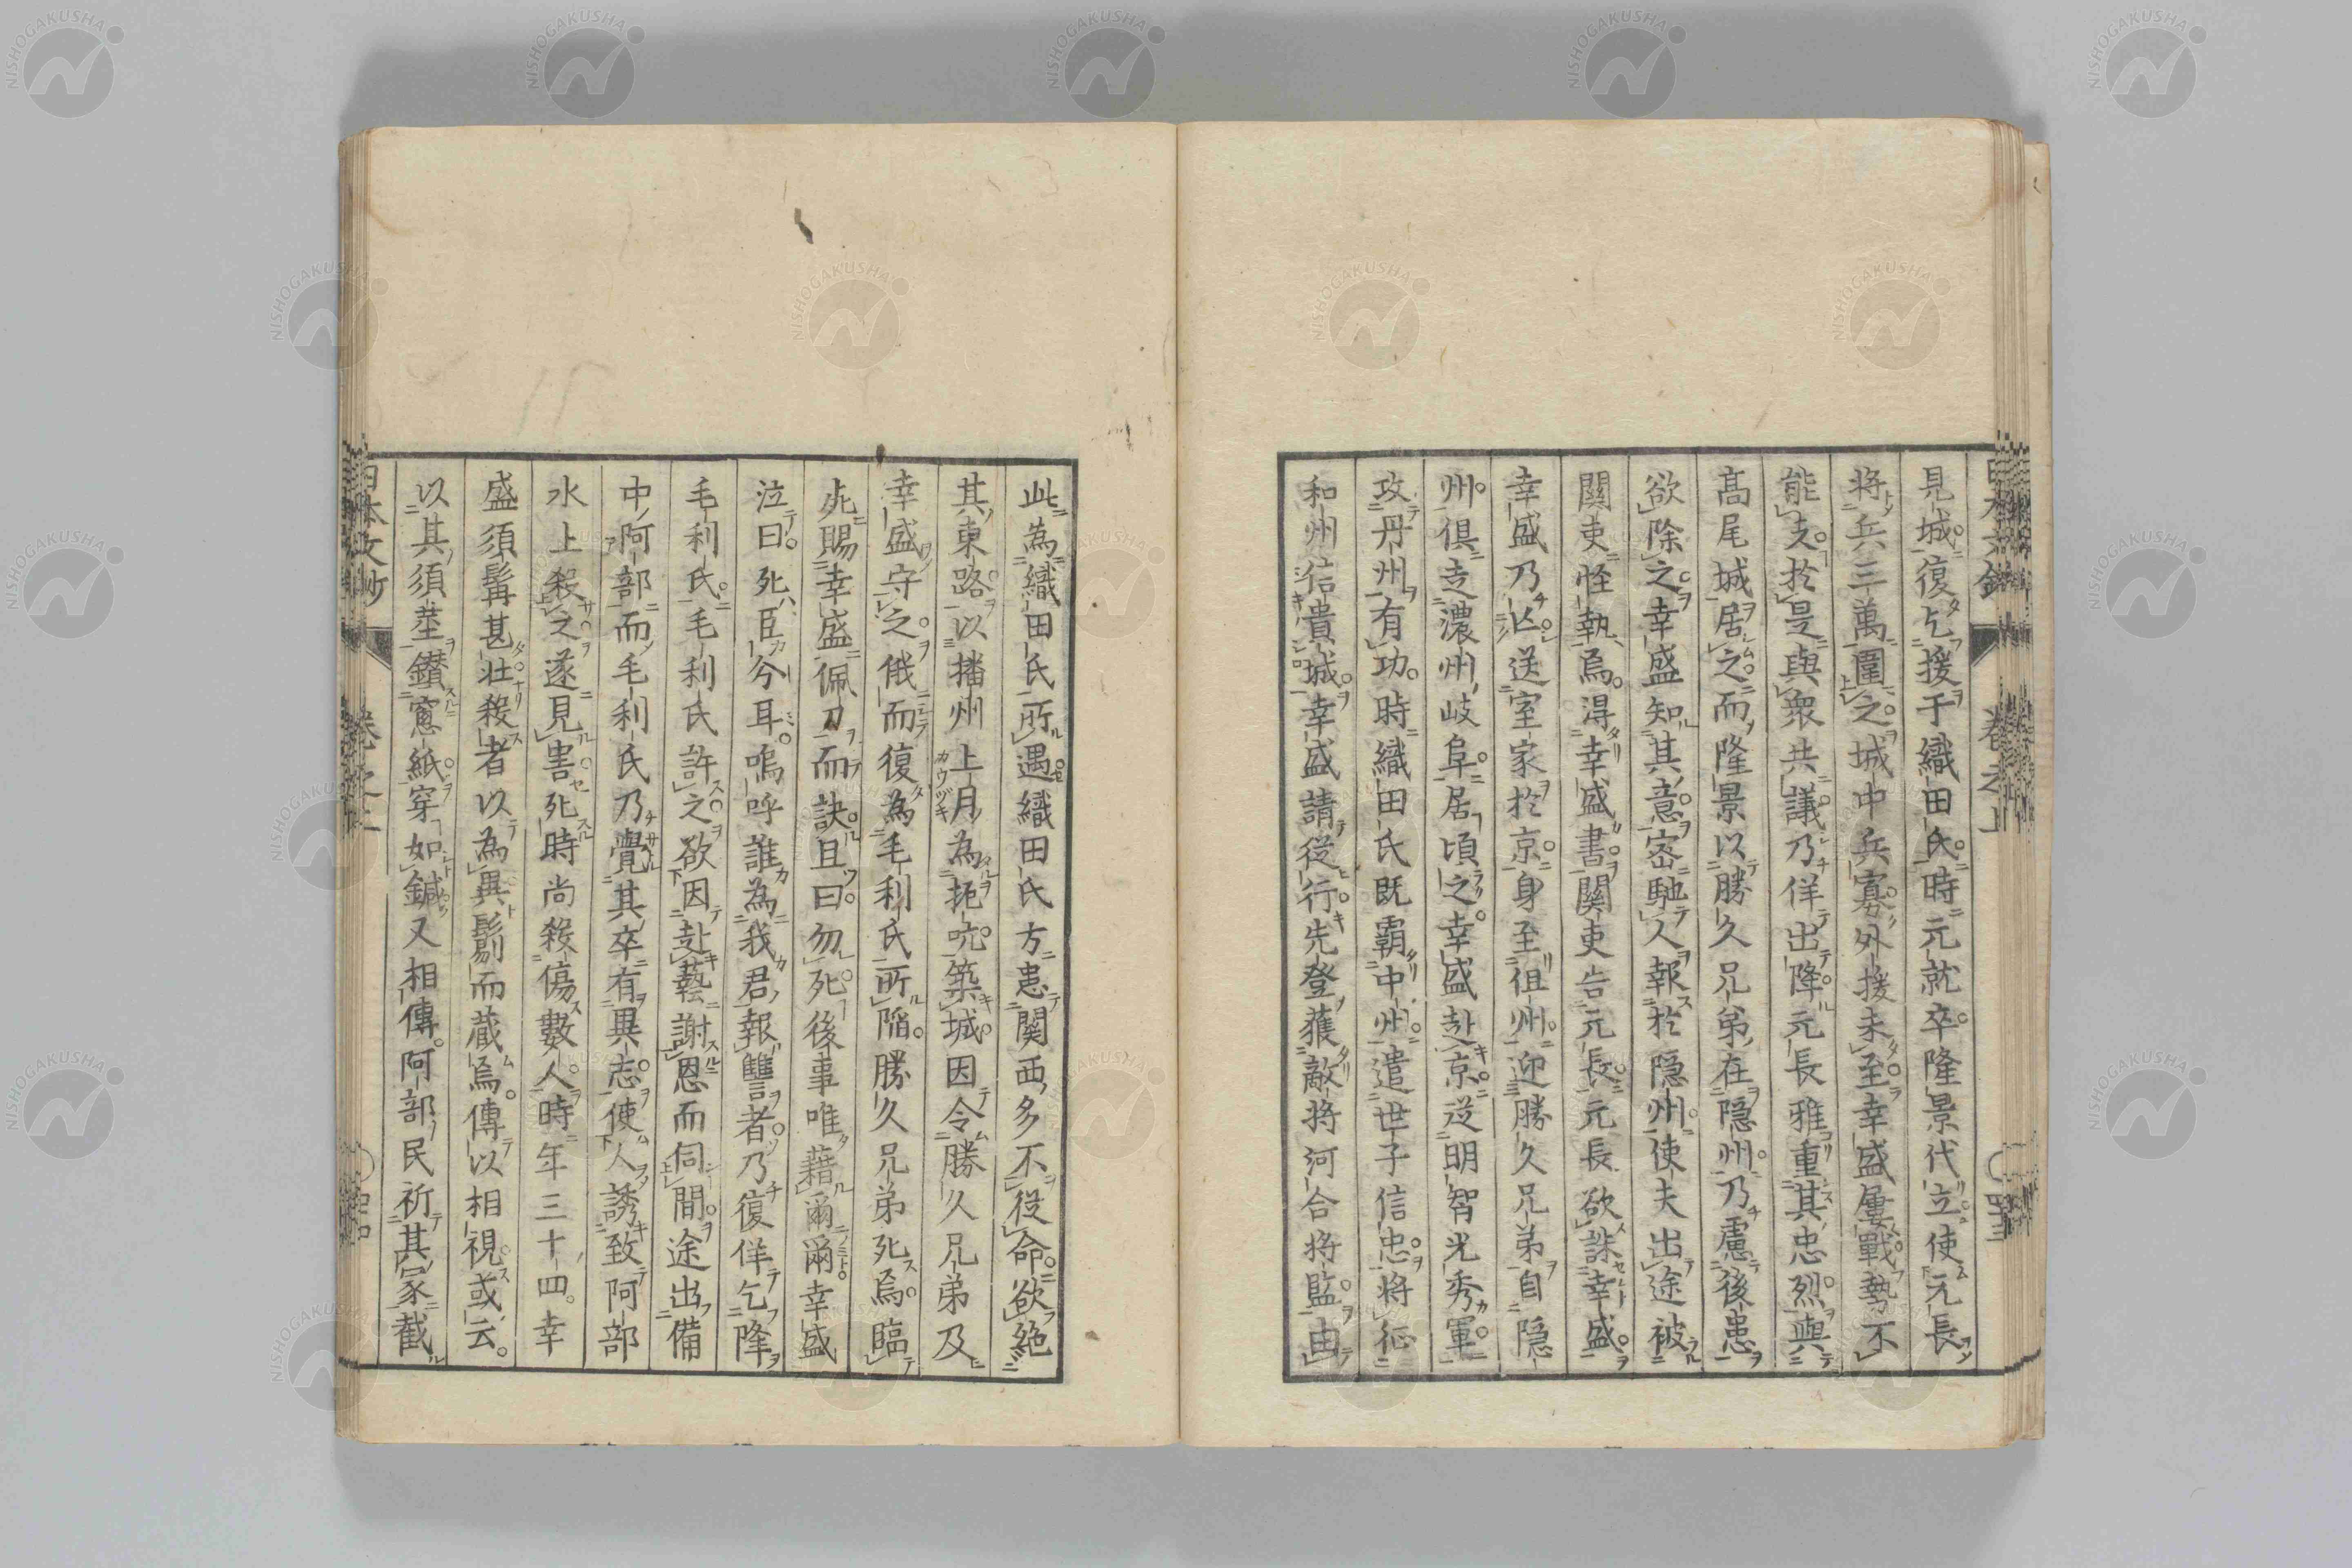 見城復乞援于織田氏時元就卒隆景代立使元長
將兵三萬圍之城中兵寡外援未至幸盛屢戰勢不
能支於是與衆共議乃佯出降元長雅重其忠烈與
髙尾城居之而隆景以勝久兄弟在隠州乃慮後患
欲除之幸盛知其意密馳人報於隠州使夫出途被
關吏怪執焉得幸盛書關吏告元長元長欲誅幸盛
幸盛乃亾送室家於京身至徂州迎勝久兄弟自隠
州俱走濃州岐阜居頃之幸盛赴京從明智光秀軍
攻丹州有功時織田氏既霸中州遣世子信忠將征
和州信貴城幸盛請從行先登獲敵將河合將監由
此為織田氏所遇織田氏方患關西多不從命欲絶
其東路以播州上月為扼吭築城因令勝久兄弟及
幸盛守之俄而復為毛利氏所陷勝久兄弟死焉臨
死賜幸盛佩刀而訣且曰勿死後事唯藉爾爾幸盛
泣曰死臣分耳嗚呼誰為我君報讐者乃復佯乞降
毛利氏毛利氏許之欲因赴藝謝恩而伺間途出備
中阿部而毛利氏乃覺其卒有異志使人誘致阿部
水上殺之遂見害死時尚殺傷數人時年三十四幸
盛須髯甚壯殺者以為異鬄而藏焉傳以相視或云
以其須莖鑽窻紙穿如鍼又相傳阿部民祈其冢截
日本文鈔
卷之上